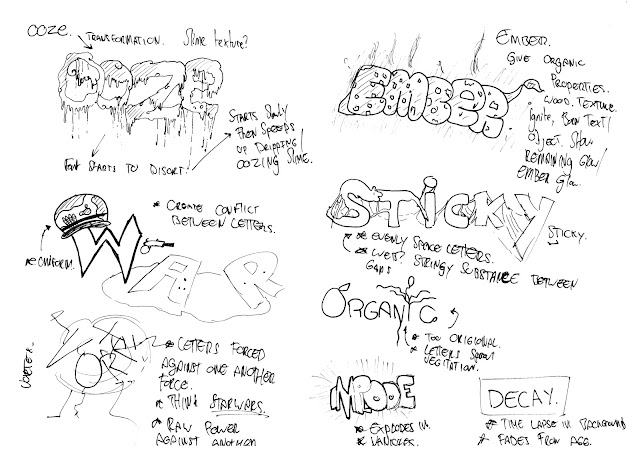 OOZE.
TRANSFORMATION. Slime texture?
OOZE
STARTS Slowly
then SPEEDS
UP DRIPPING/
OOZING SLIME.
Font STARTS TO DISORT.
EMBER.
GIVE ORGANIC
PROPERTIES.
WOOD. TEXTURE.
Ignite, Burn TEXT/
Object. Show
REMAINING Glow/
EMBER Glow.
EMBER
* CREATE CONFLICT
BETWEEN LETTERS.
* UNIFORM.
WAR
STICKY
STICKY.
* EVENLY SPACE LETTERS.
* WET? STRINGY SUBSTANCE BETWEEN
GAPS
ORGANIC
* TOO ORIGIONAL.
* LETTERS SPROUT
VEGITATION.
VORTEX.
* LETTERS FORCED
AGAINST ONE ANOTHER
FORCE.
* THINK STARWARS.
* RAW POWER
AGAINST ANOTHER
IMPLODE
* EXPLODES IN.
* VANISHES.
DECAY.
* TIME LAPSE IN BACKGROUND
* FADES FROM AGE.